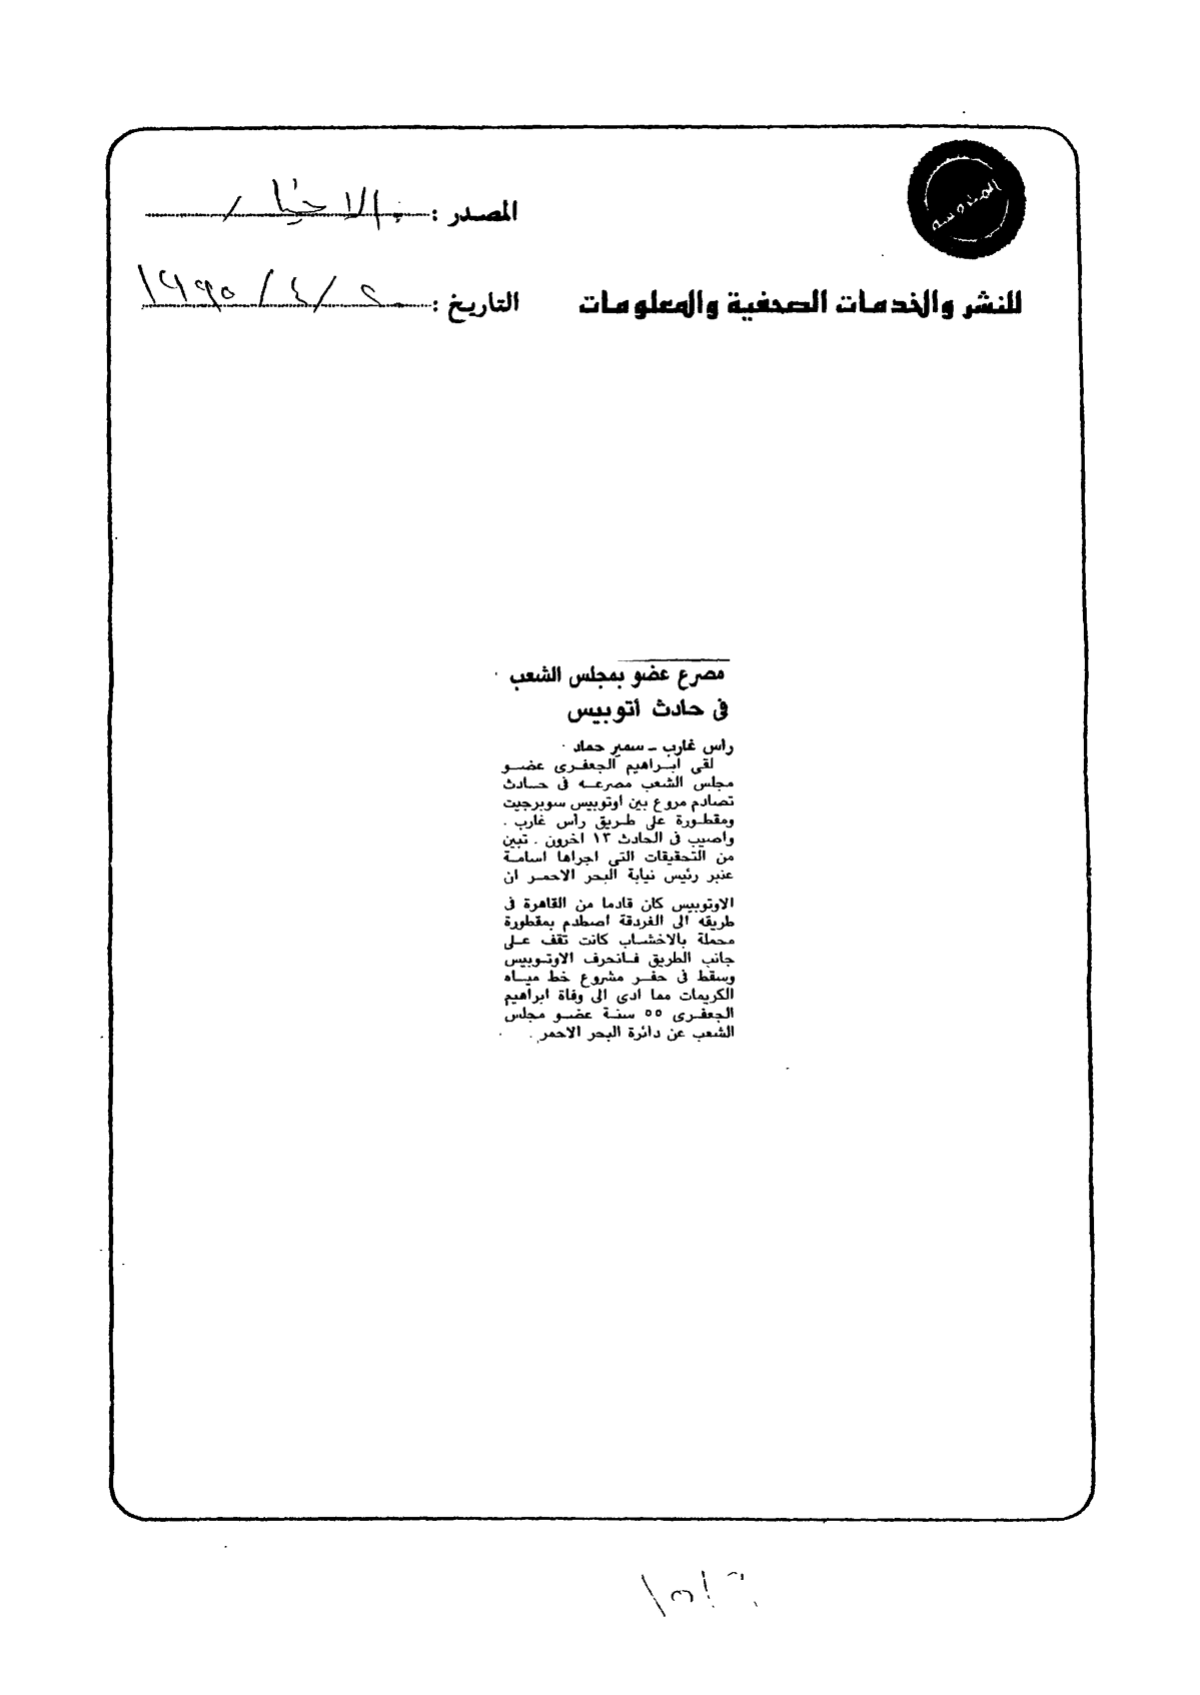 المصدر : الاخبار
للنشر والخدمات الصحفية والمعلومات
التاريخ : ٢٠ / ٤ / ١٩٩٥
مصرع عضو بمجلس الشعب
فى حادث أتوبيس
رأس غارب ـ سمير حماد
لقى ابراهيم الجعفرى عضو
مجلس الشعب مصرعه فى حادث
تصادم مروع بين اوتوبيس سوبرجيت
ومقطورة على طريق رأس غارب .
واصيب فى الحادث ١٣ اخرون . تبين
من التحقيقات التى اجراها اسامة
عنبر رئيس نيابة البحر الاحمر ان
الاوتوبيس كان قادما من القاهرة فى
طريقه الى الغردقة اصطدم بمقطورة
محملة بالاخشاب كانت تقف على
جانب الطريق فانحرف الاوتوبيس
وسقط فى حفر مشروع خط مياه
الكريمات مما ادى الى وفاة ابراهيم
الجعفرى ٥٥ سنة عضو مجلس
الشعب عن دائرة البحر الاحمر .